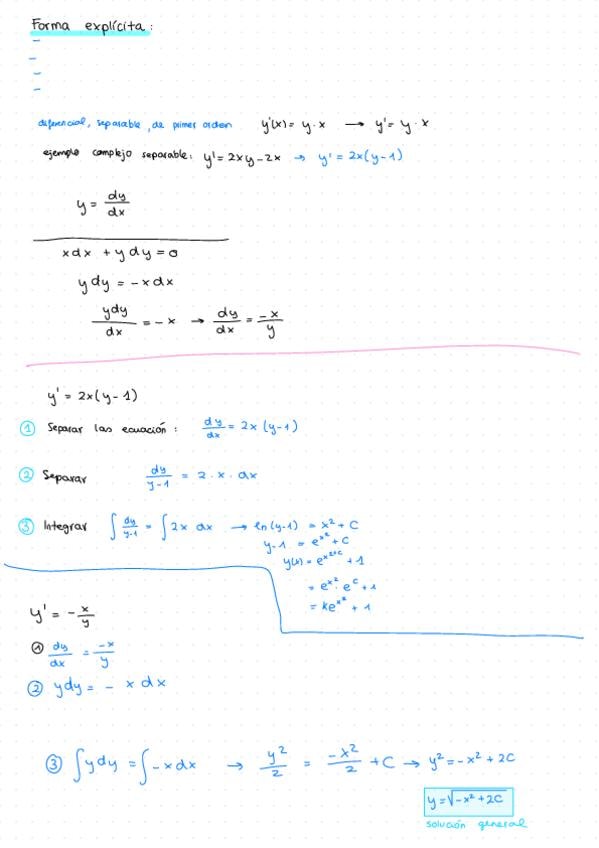 Forma explícita:
-
-
-
-
diferencial, separable, de primer orden y'(x) = y · x → y' = y · x
ejemplo complejo separable: y' = 2xy - 2x → y' = 2x(y-1)
y = dy/dx
xdx + ydy = 0
ydy = -xdx
ydy/dx = -x → dy/dx = -x/y
y' = 2x(y-1)
① Separar las ecuación: dy/dx = 2x(y-1)
② Separar dy/y-1 = 2 · x · dx
③ Integrar ∫ dy/y-1 = ∫ 2x dx → ln(y-1) = x² + C
y-1 = e^x² + C
y(x) = e^x²+c + 1
= e^x² · e^c + 1
= ke^x² + 1
y' = - x/y
① dy/dx = -x/y
② ydy = - x dx
③ ∫ydy = ∫-xdx → y²/2 = -x²/2 + C → y² = -x² + 2C
y = √-x² + 2C
solución general